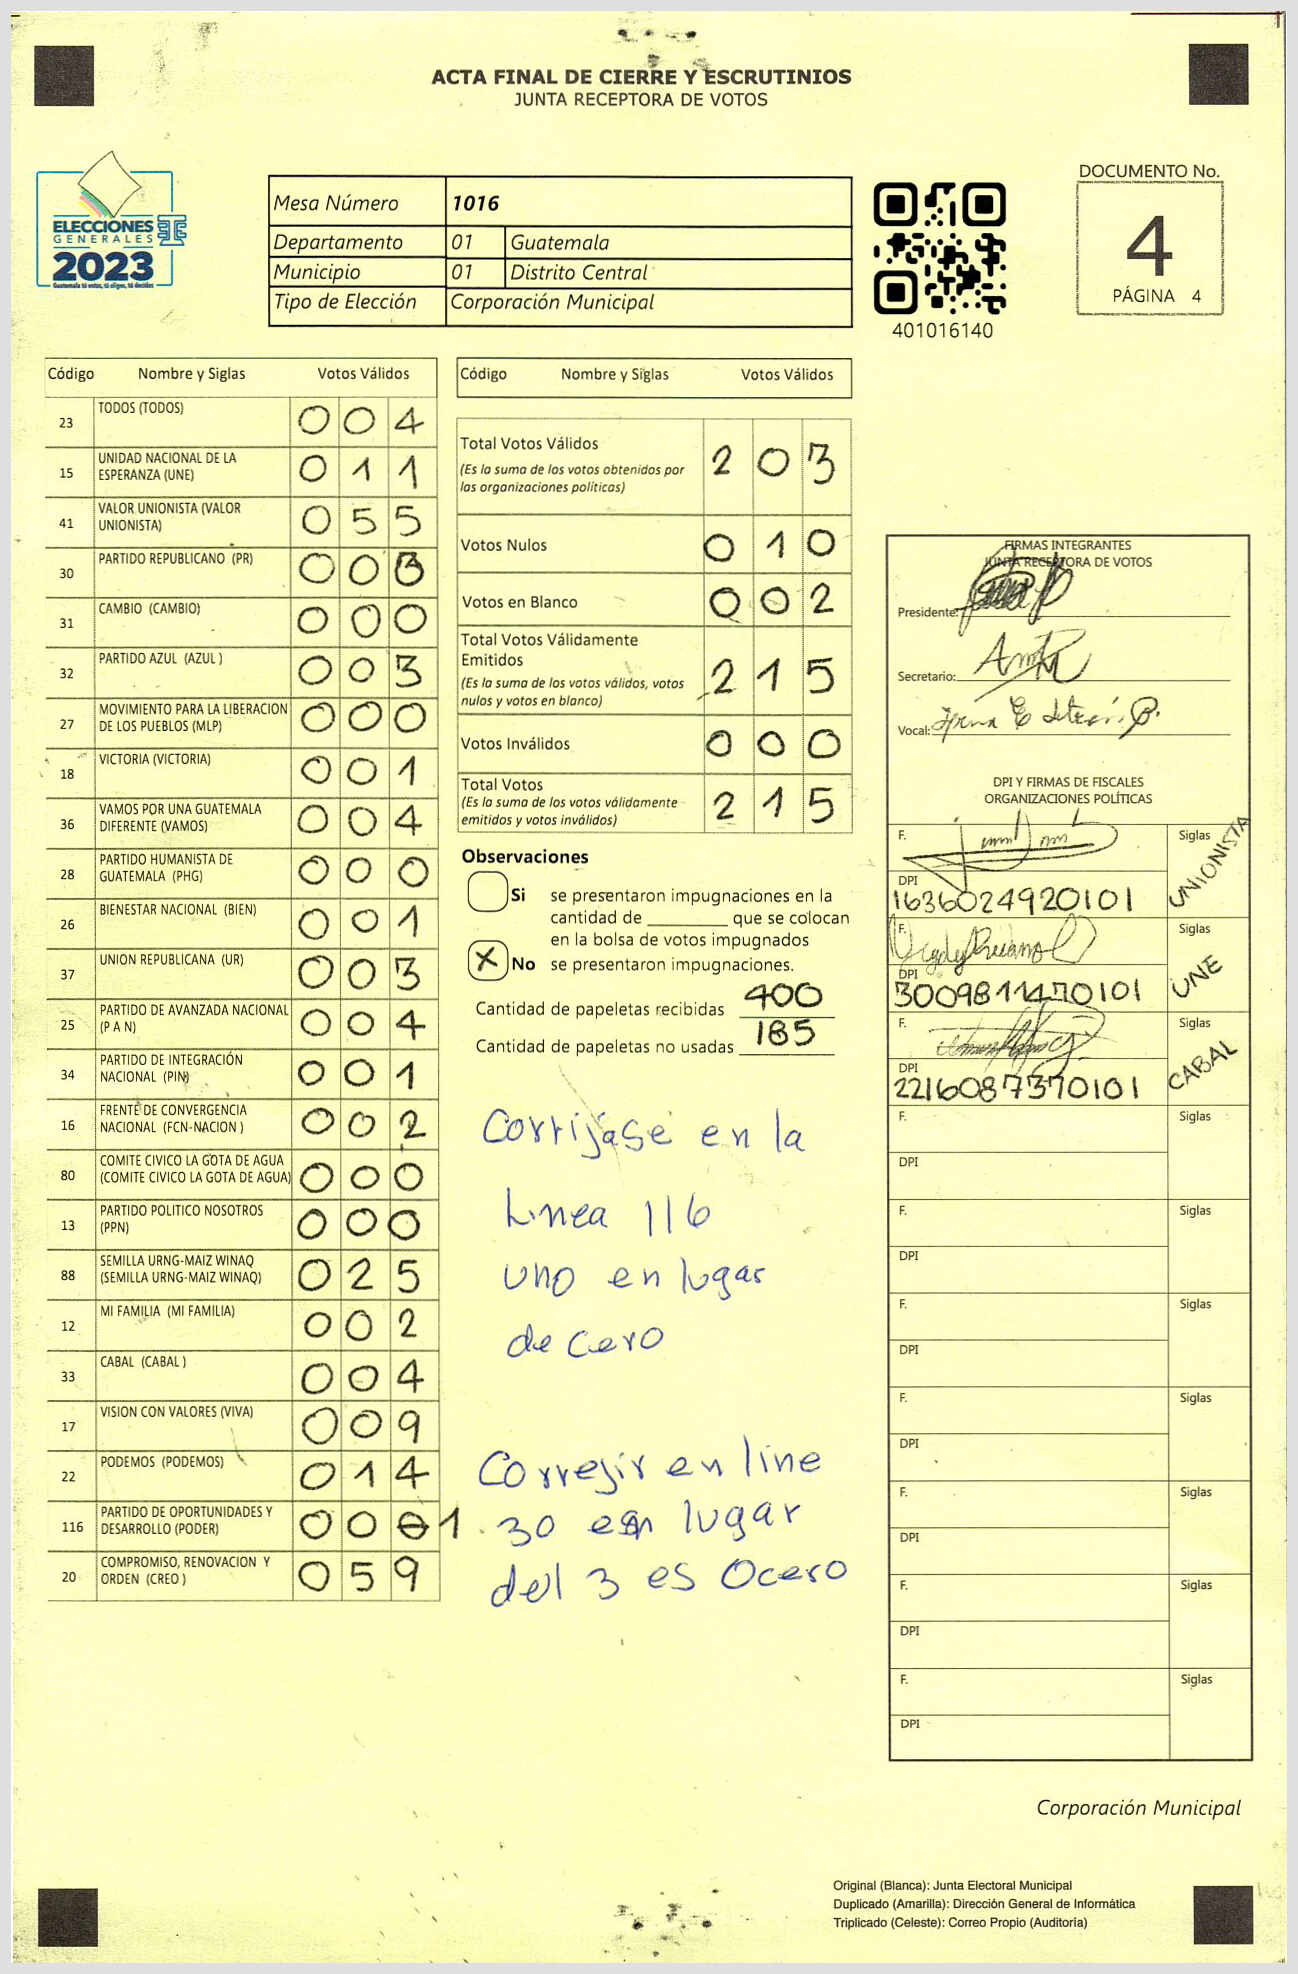 ACTA FINAL DE CIERRE Y ESCRUTINIOS
JUNTA RECEPTORA DE VOTOS
ELECCIONES
GENERALES
2023
Guatemala tú votas, tú eliges, tú decides
Mesa Número 1016
Departamento 01 Guatemala
Municipio 01 Distrito Central
Tipo de Elección Corporación Municipal
401016140
DOCUMENTO No.
4
PÁGINA 4
Código Nombre y Siglas Votos Válidos
23 TODOS (TODOS) 0 0 4
15 UNIDAD NACIONAL DE LA ESPERANZA (UNE) 0 1 1
41 VALOR UNIONISTA (VALOR UNIONISTA) 0 5 5
30 PARTIDO REPUBLICANO (PR) 0 0
31 CAMBIO (CAMBIO) 0 0 0
32 PARTIDO AZUL (AZUL ) 0 0 3
27 MOVIMIENTO PARA LA LIBERACION DE LOS PUEBLOS (MLP) 0 0 0
18 VICTORIA (VICTORIA) 0 0 1
36 VAMOS POR UNA GUATEMALA DIFERENTE (VAMOS) 0 0 4
28 PARTIDO HUMANISTA DE GUATEMALA (PHG) 0 0 0
26 BIENESTAR NACIONAL (BIEN) 0 0 1
37 UNION REPUBLICANA (UR) 0 0 3
25 PARTIDO DE AVANZADA NACIONAL (P A N) 0 0 4
34 PARTIDO DE INTEGRACIÓN NACIONAL (PIN) 0 0 1
16 FRENTE DE CONVERGENCIA NACIONAL (FCN-NACION ) 0 0 2
80 COMITE CIVICO LA GOTA DE AGUA (COMITE CIVICO LA GOTA DE AGUA) 0 0 0
13 PARTIDO POLITICO NOSOTROS (PPN) 0 0 0
88 SEMILLA URNG-MAIZ WINAQ (SEMILLA URNG-MAIZ WINAQ) 0 2 5
12 MI FAMILIA (MI FAMILIA) 0 0 2
33 CABAL (CABAL ) 0 0 4
17 VISION CON VALORES (VIVA) 0 0 9
22 PODEMOS (PODEMOS) 0 1 4
116 PARTIDO DE OPORTUNIDADES Y DESARROLLO (PODER) 0 0 0 1
20 COMPROMISO, RENOVACION Y ORDEN (CREO ) 0 5 9
Código Nombre y Siglas Votos Válidos
Total Votos Válidos 2 0 3
(Es la suma de los votos obtenidos por
las organizaciones políticas)
Votos Nulos 0 1 0
Votos en Blanco 0 0 2
Total Votos Válidamente
Emitidos 2 1 5
(Es la suma de los votos válidos, votos
nulos y votos en blanco)
Votos Inválidos 0 0 0
Total Votos 2 1 5
(Es la suma de los votos válidamente
emitidos y votos inválidos)
Observaciones
Si se presentaron impugnaciones en la
cantidad de ________ que se colocan
en la bolsa de votos impugnados
X No se presentaron impugnaciones.
Cantidad de papeletas recibidas 400
Cantidad de papeletas no usadas 185
Corrijase en la
Linea 116
uno en lugar
de cero
Correjir en line
30 en lugar
del 3 es 0cero
FIRMAS INTEGRANTES
JUNTA RECEPTORA DE VOTOS
Presidente:
Secretario:
Vocal:
DPI Y FIRMAS DE FISCALES
ORGANIZACIONES POLÍTICAS
F. Siglas UNIONISTA
DPI
1636024920101
F. Siglas UNE
DPI
3009811470101
F. Siglas CABAL
DPI
2216087370101
F. Siglas
DPI
F. Siglas
DPI
F. Siglas
DPI
F. Siglas
DPI
F. Siglas
DPI
F. Siglas
DPI
F. Siglas
DPI
Corporación Municipal
Original (Blanca): Junta Electoral Municipal
Duplicado (Amarilla): Dirección General de Informática
Triplicado (Celeste): Correo Propio (Auditoría)